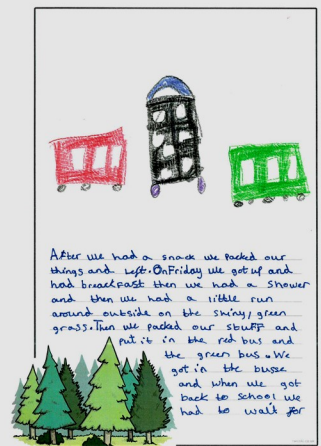 After we had a snack we packed our
things and left. On Friday we got up and
had breakfast then we had a shower
and then we had a little run
around outside on the shiny, green
grass. Then we packed our stuff and
put it in the red bus and
the green bus. We
got in the busse
and when we got
back to school we
had to wait for